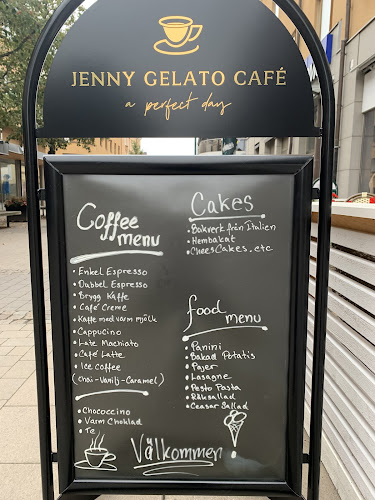 JENNY GELATO CAFÉ
a perfect day
Coffee
menu
• Enkel Espresso
• Dubbel Espresso
• Brygg Kaffe
• Café Creme
• Kaffe med varm mjölk
• Cappucino
• Late Machiato
• Café Latte
• Ice coffee
(chai-Vanilj-Caramel)
• Chococcino
• Varm Choklad
• Te
Cakes
• Bakverk från Italien
• Hembakat
• CheesCakes.etc
food
menu
• Panini
• Bakad Potatis
• Pajer
• Lasagne
• Pesto Pasta
• Räksallad
• Ceasar Sallad
Välkommen!